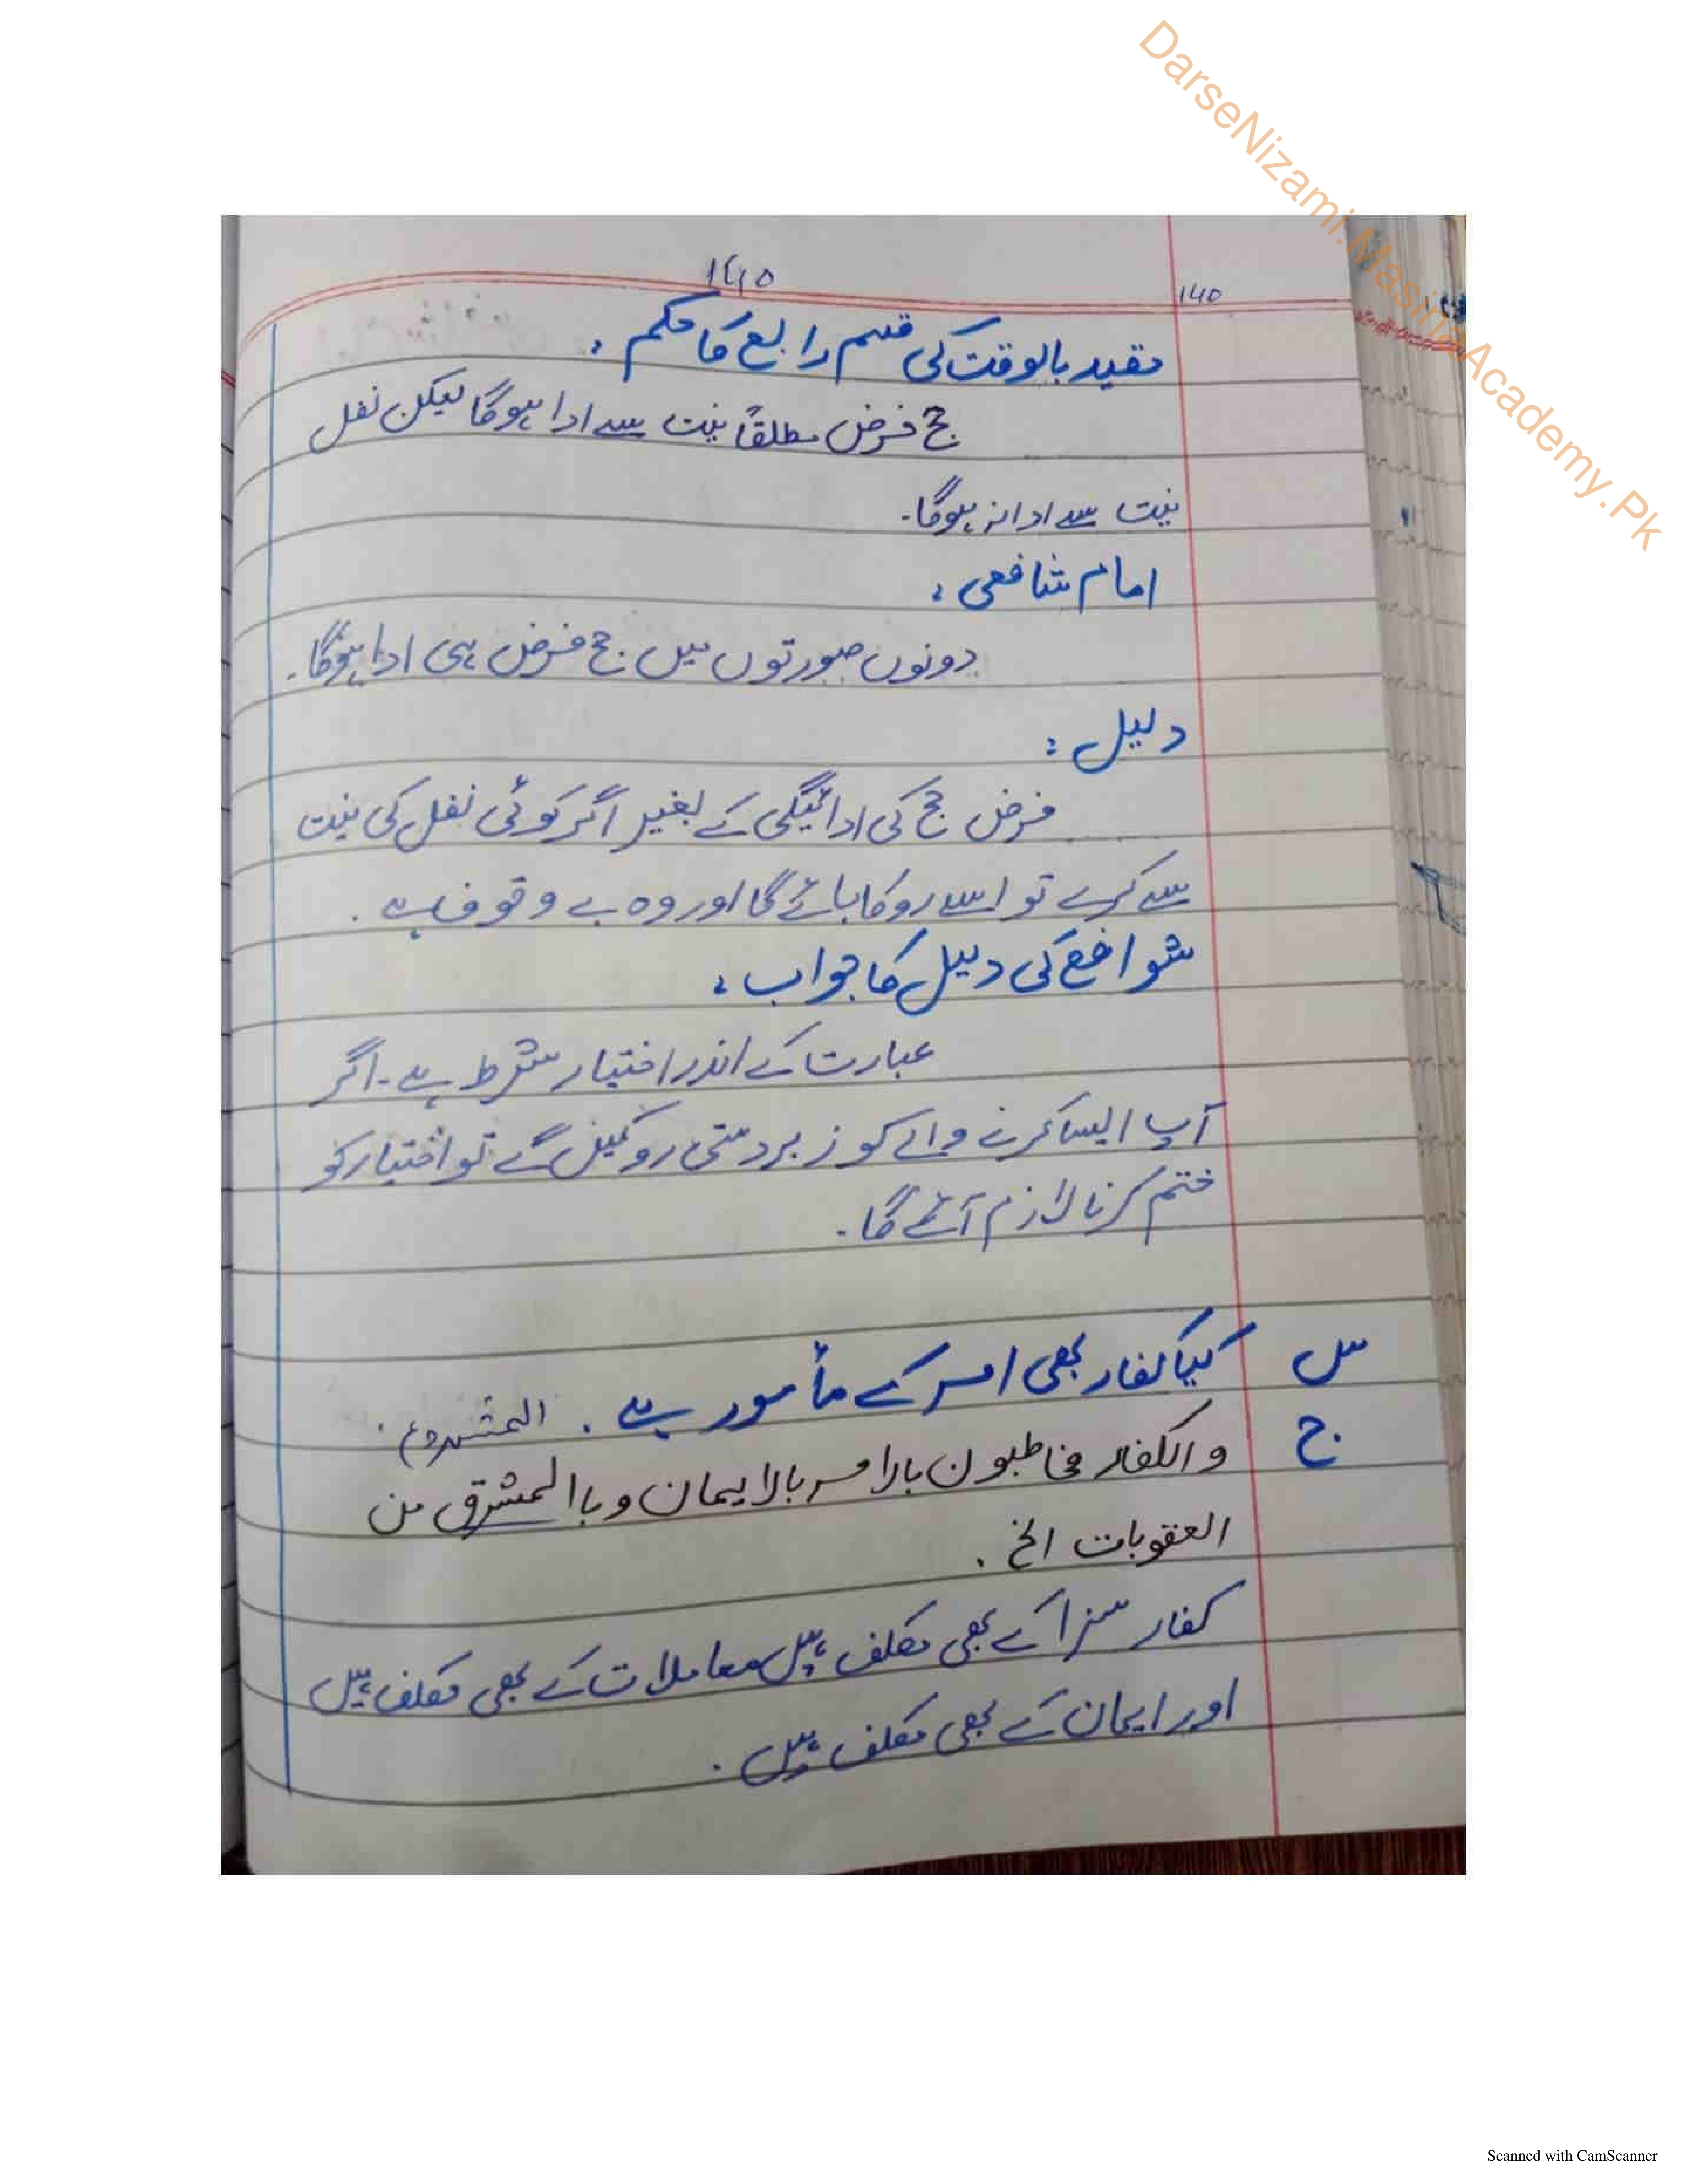 DarseNizami.MasiriaAcademy.Pk
140
مقید بالوقت کی قسم رابع کا حکم :
حج فرض مطلقاً نیت سے ادا ہوگا لیکن نفل
نیت سے ادا نہ ہوگا۔
امام شافعی :
دونوں صورتوں میں حج فرض ہی ادا ہوگا۔
دلیل :
فرض حج کی ادائیگی کے بغیر اگر کوئی نفل کی نیت
سے کرے تو اسے روکا جائے گا اور وہ بے وقوف ہے ۔
شوافع کی دلیل کا جواب :
عبارت کے اندر اختیار شرط ہے ۔ اگر
آپ ایسا کرنے والے کو زبردستی روکیں گے تو اختیار کو
ختم کرنا لازم آئے گا ۔
س کیا کفار بھی امر کے مأمور ہے ۔
المشروع
ج والکفار مخاطبون بالامر بالایمان و باالمشرق من
العقوبات الخ ۔
کفار سزا کے بھی مکلف ہیں معاملات کے بھی مکلف ہیں
اور ایمان کے بھی مکلف ہیں ۔
Scanned with CamScanner